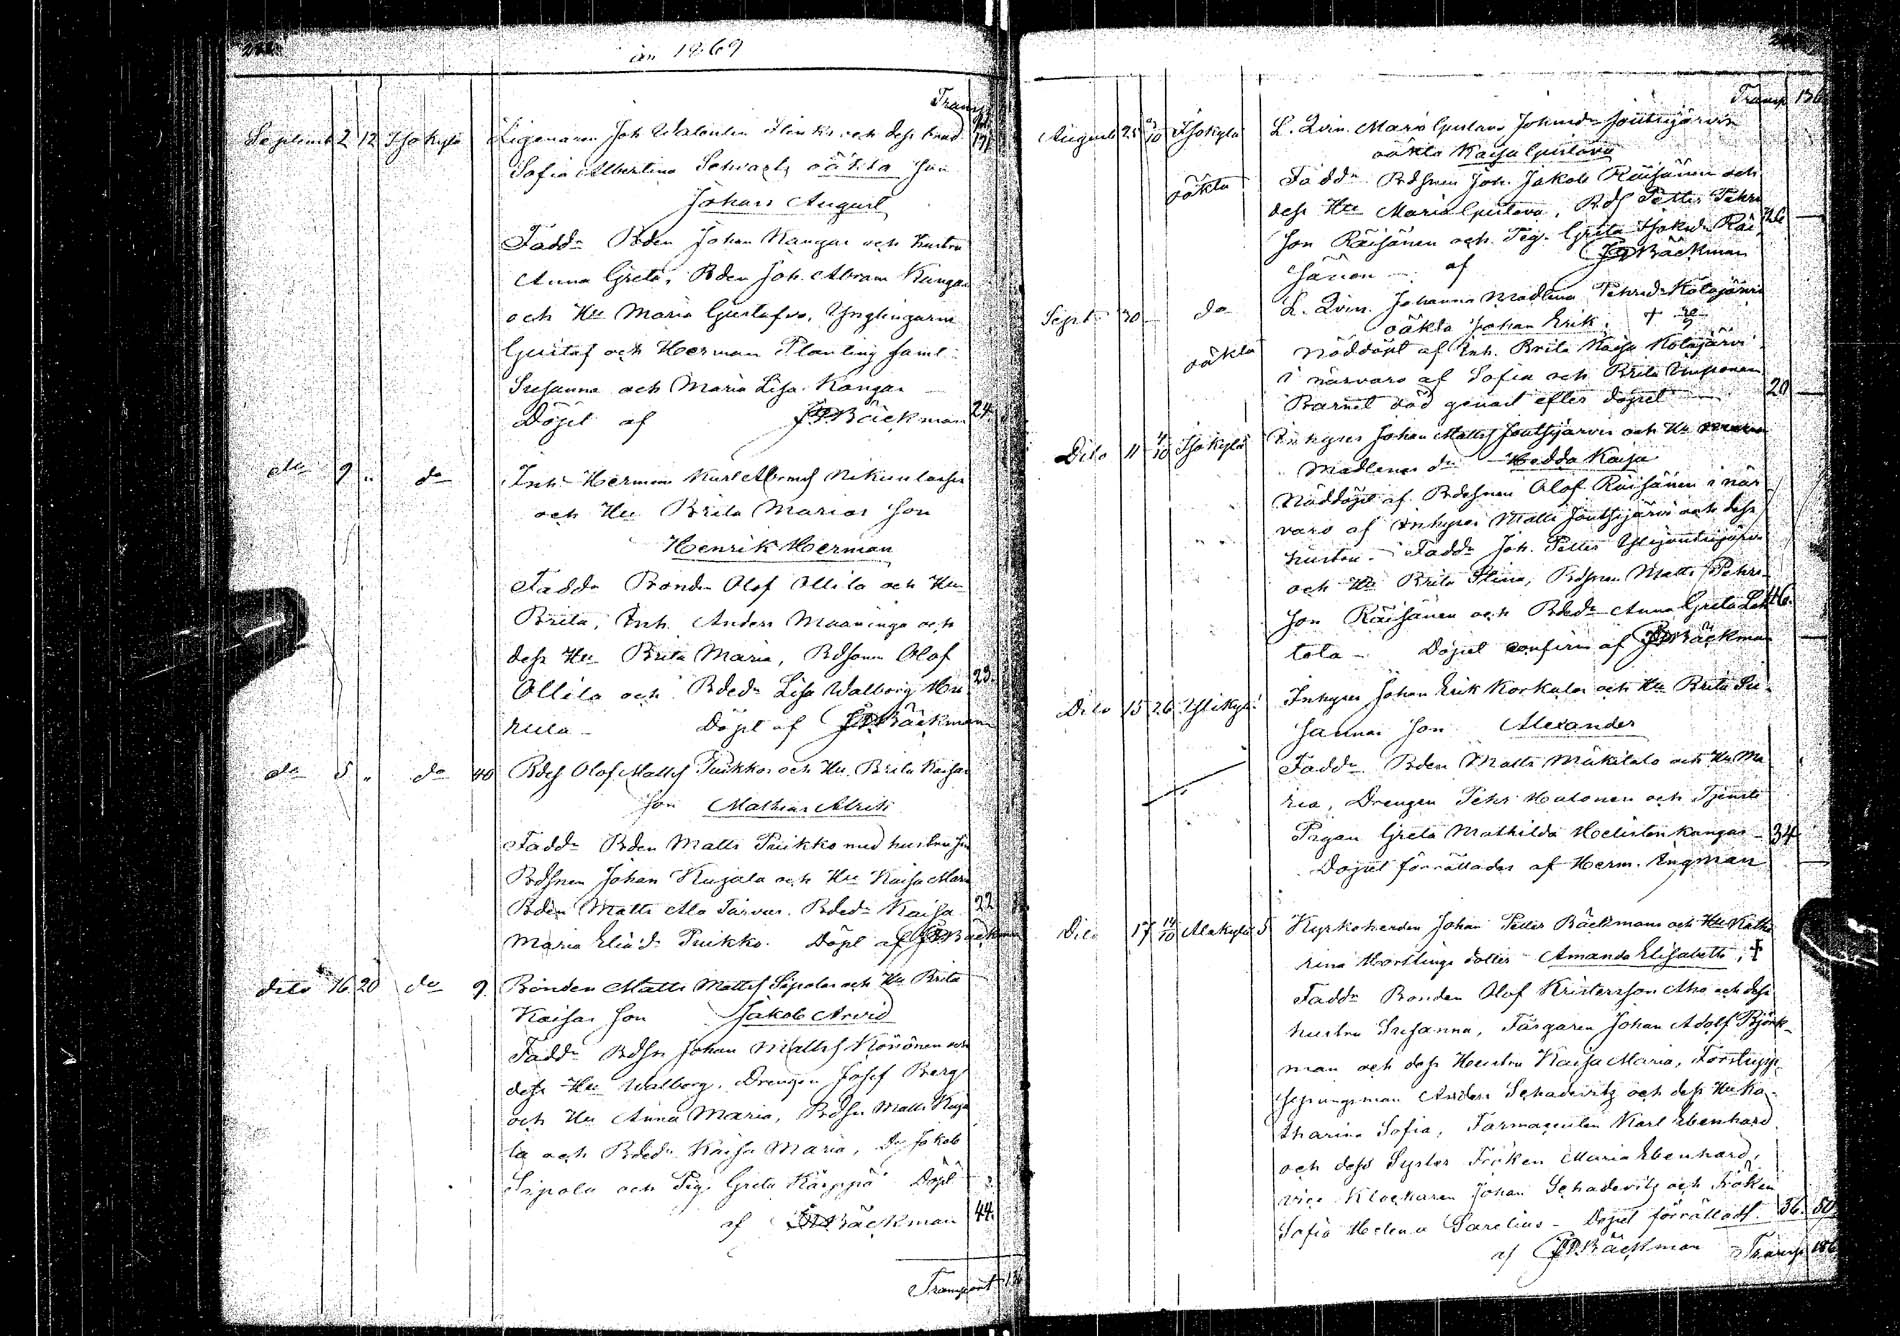 år 1869
Transp
Septemb 2 12 Isokylä Ligenaren Joh Walentin Flinks och dess hus
Sofia Albertina Schvartz oäkta son
Johan August
Fadd. Bden Johan Kangas och hustru
Anna Greta, Bden Joh. Abram Kangas
och Hu Maria Gustafva, Ynglingarne
Gustaf och Herman Planting samt
Susanna och Maria Lisa Kangas
Döpt af JPBäckman 24.
do 9 " do Inh. Herman Karl Abrams Nikunlassa
och Hu Brita Marias son
Henrik Herman
Fadd. Bonden Olof Ollila och Hu
Brita, Inh. Anders Maaninga och
dess Hu Brita Maria, Bdsonen Olof
Ollila och Bdedr Lisa Walborg Hu 23.
hula Döpt af JPBäckman
do 5 " do 40 Bdes Olof Matts Puikkos och Hu Brita Kaisas
son Mathias Alrik
Fadd. Bden Matts Puikko med hustru
Bdsnen Johan Kugala och Hu Kaisa Maria
Bden Matts Ala Tarvas. Bdedr Kaisa 22
Maria Eliædr Puikko. Döpt af JPBäckman
dito 16 20 do 9. Bonden Matts Matts Sipolas och Hu Brita
Kaisas son Jakob Arvid
Fadd. Bdsn Johan Matts Könönen och
dess Hu Walborg, Drengen Josef Berg
och Hu Anna Maria, Bdsn Matts Kuja
la och Bdedr Kaisa Maria, Dr Jakob
Sipola och Pig. Greta Kärppä Döpt
af JPBäckman 44.
Transport
Transp 136
Augusti 25 10 Isokylä L. Qvin. Maria Gustava Johansdr Joutsijärvis
oäkta Kaisa Gustava
oäkta Fadd. Bdsnen Joh. Jakob Räisänen och
dess Hu Maria Gustava, Bds Petter Pehrs
son Räisänen och Pig. Greta Isaksdr Räi 26
sänen af JPBäckman
Sept 30 do L. Qvin. Johanna Madlena Pehrsdr Kotajärvis
oäkta Johan Erik. + 30/9
oäkta Nöddöpt af Inh. Brita Kaisa Kotajärvi
i närvaro af Sofia och Brita Timponen
Barnet död genast efter döpet 20
Dito 11 4/10 Isokylä Inhyses Johan Matts Joutsijärvis och Hu
Madlenas dr Hedda Kaisa
Nöddöpt af Bdesnen Olof Räisänen i när
varo af inhyses Matts Joutsijärvi och dess
hustru. Fadd. Joh. Petter Ylijoutsijärvi
och Hu Brita Stina, Bdsnen Matts Pehrs
son Räisänen och Bdedr Anna Greta Leh 46.
tola Döpet confirm af JPBäckman
Dito 15 26 Ylikylä Inhyses Johan Erik Korkalos och Hu Brita Su
sannas son Alexander
Fadd. Bden Matts Mäkitalo och Hu Ma
ria, Drengen Pehr Halonen och Tjenste
Pigan Greta Mathilda Hetistenkangas 34
Döpet förrättades af Herm. Engman
Dito 17 14/10 Alakylä 5 Kyrkoherden Johan Petter Bäckmans och Hu Katha
rina Horttlings dotter Amanda Elisabeth, +
Fadd. Bonden Olof Kristersson Aho och dess
hustru Susanna, Färgaren Johan Adolf Björk
man och dess Hustru Kaisa Maria, Förstuppsyningsman
Anders Schadevitz och dess Hu Ka
tharina Sofia, Farmaceuten Karl Ebenhard
och dess Syster Fröken Maria Ebenhard,
vice Klockaren Johan Schadevitz och Fröken
Sofia Helena Sarelius Döpet förrättadt. 36. 50
af JPBäckman Transp 186